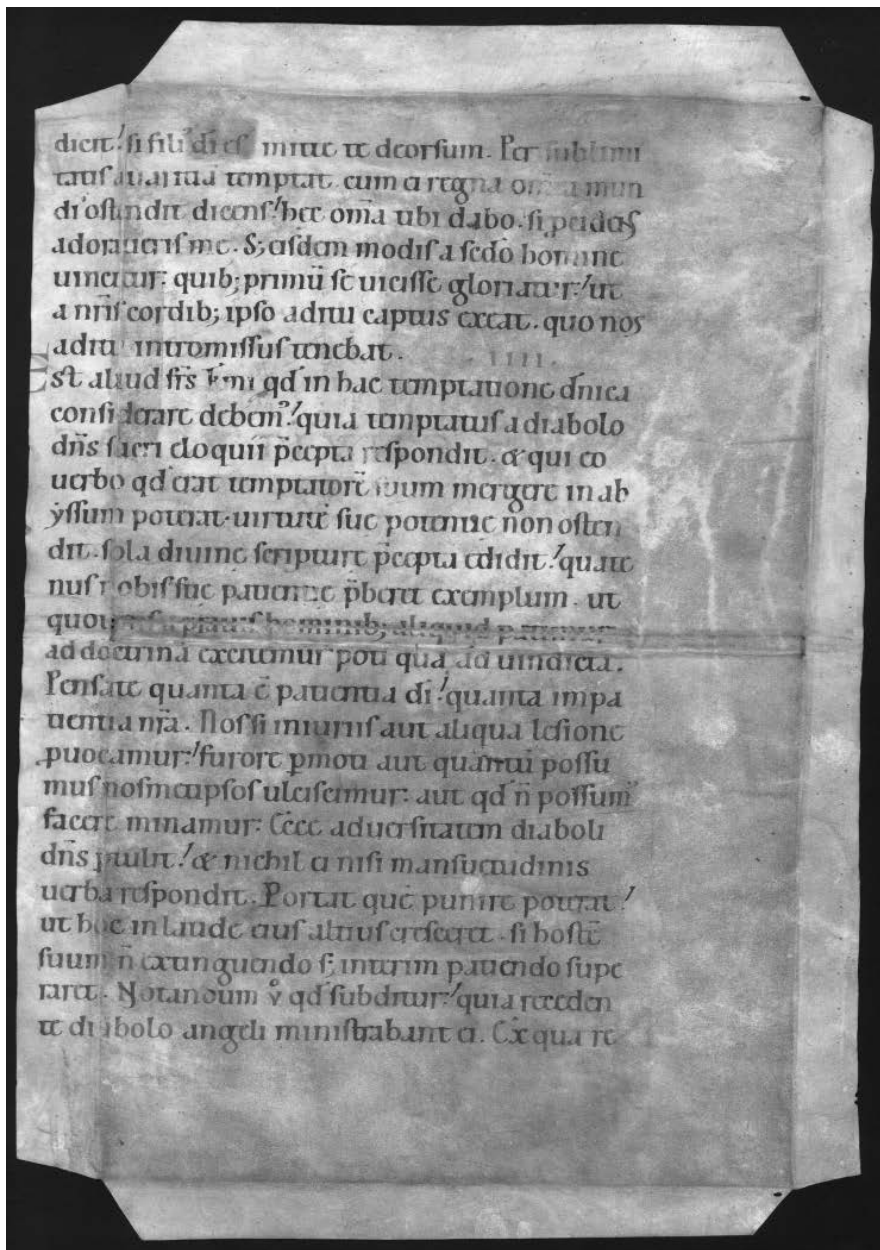 dicit: si fili᾽ di es mitte te deorsum. Per sublimi
tatis auaritiā temptat. cum ei regna omnia mun
di ostendit dicens: hec om̄ia tibi dabo. si p̱cidens
adoraueris me. S; eisdem modis a sedo homine
uincitur: quib; primū se uicisse gloriatur: ut
a nr̄is cordib; ipso aditu captus exeat. quo nos
aditu intromissus tenebat. IIII.
Est aliud fr̄s k̄mi qd̄ in hac temptatione dn̄ica
considerare debem᾽: quia temptatus a diabolo
dn̄s sacri eloquii p̄cepta respondit. & qui eo
uerbo qd̄ erat temptatorē suum mergere in ab
yssum poterat. uirtutē sue potentie non osten
dit. sola diuine scripture p̄cepta edidit: quate
nus nobis sue patientie p̄beret exemplum. ut
quotiens a prauis hominib; aliquid patimur
ad doctrinā excitemur poti quā ad uindictā.
Pensate quanta ē patientia di: quanta impa
tientia nr̄a. Nos si iniuriis aut aliqua lesione
ꝓuocamur: furore p̱moti aut quantū possu
mus nosmetipsos ulciscimur: aut qd̄ n̄ possum᾽
facere minamur: Ecce aduersitatem diaboli
dn̄s ptulit: & nichil ei nisi mansuetudinis
uerba respondit. Portat quē punire poterat:
ut hoc in laude eius altius cresceret. si hostē
suum n̄ extinguendo s; interim patiendo supe
raret. Notandum v̊ qd̄ subditur: quia receden
te diabolo angeli ministrabant ei. Ex qua re